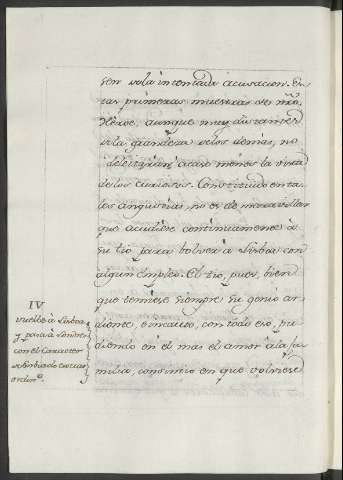 ser vela intentada acusacion. Es-
tas primeras muestras de nrô
Heroe, aunque muy distantes
de la grandeza de los demas, no
deleitarán acaso menos la vista
de los curiosos. Constituido en ta-
les angustias, no es de maravillar
que acudiese continuamente à
su tio para bolver à Lisboa con
algun empleo. El tio, pues, bien
que temiese siempre su genio ar-
diente, e incauto, con todo eso, pu-
diendo en él mas el amor à la fa-
milia, consintió en que volviese
IV
vuelve à Lisboa,
y pasa à Londres
con el Caracter
de Embiado extra-
ordin.º